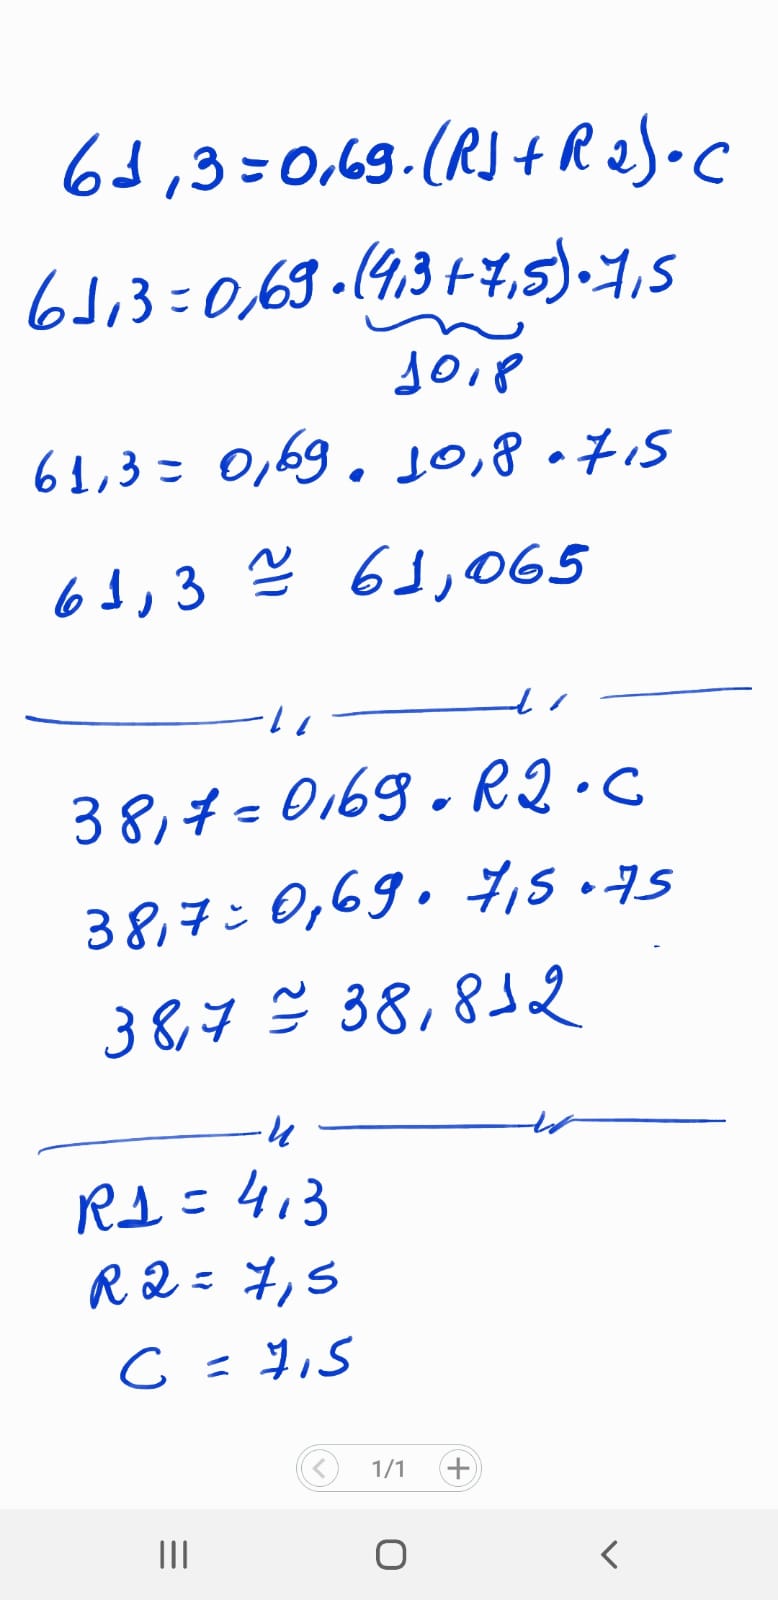 61,3=0,69.(R1+R2).C
61,3=0,69.(4,3+7,5).7,5
10,8
61,3=0,69.10,8.7,5
61,3≅61,065
38,7=0,69.R2.C
38,7=0,69.7,5.75
38,7≅38,812
R1=4,3
R2=7,5
C=7,5
1/1